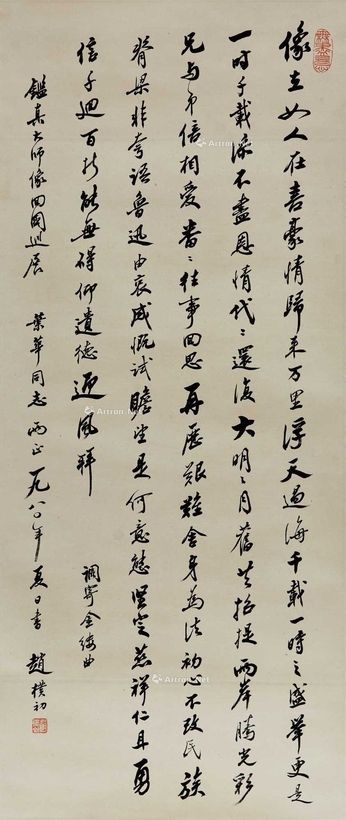 像立如人在喜豪情归来万里浮天过海千载一时之盛举更是
一时千载添不尽恩情代代还复大明明月旧共招提两岸腾光彩
兄与弟倍相爱番番往事回思再历艰难舍身为法初心不改民族
脊梁非夸语鲁迅由衷感慨试瞻望是何意态坚定慈祥仁且勇
信千回百折能无碍仰遗德迎风拜
调寄金缕曲
鑑真大师像回国巡展
叶华同志两正一九八〇年夏日书
赵朴初